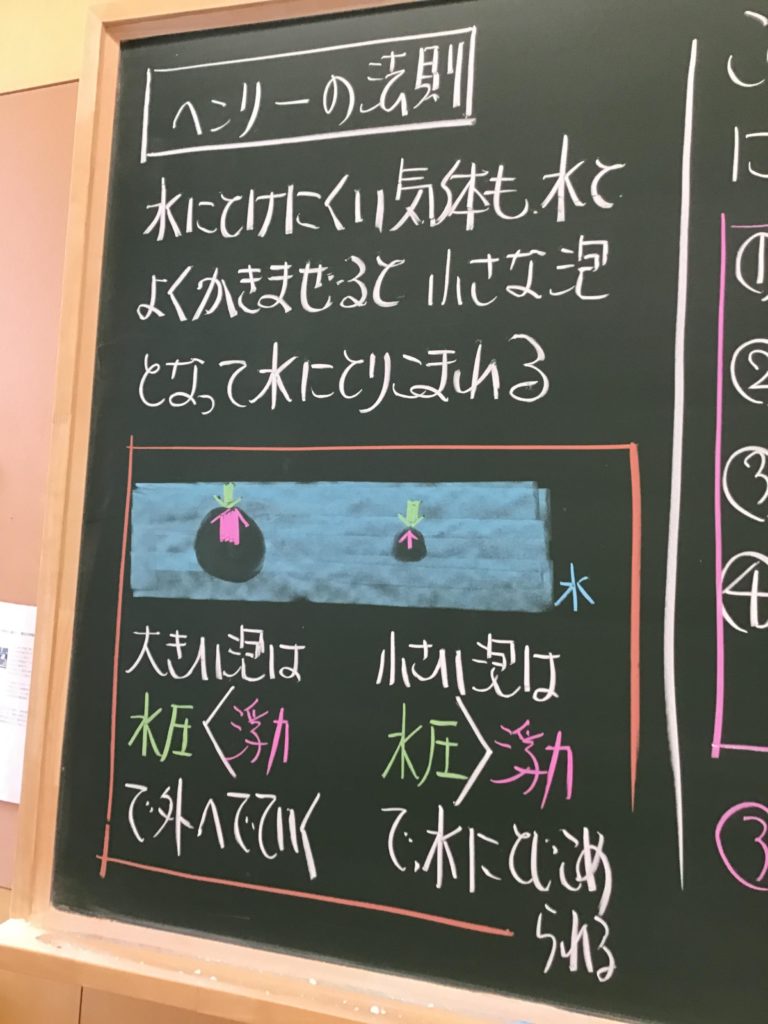 ヘンリーの法則
水にとけにくい気体も、水と
よくかきまぜると 小さな泡
となって水にとりこまれる
水
大きい泡は
水圧＜浮力
で外へでていく
小さい泡は
水圧＞浮力
で、水にとじこめ
られる
こ
に
①
②
③
④
③